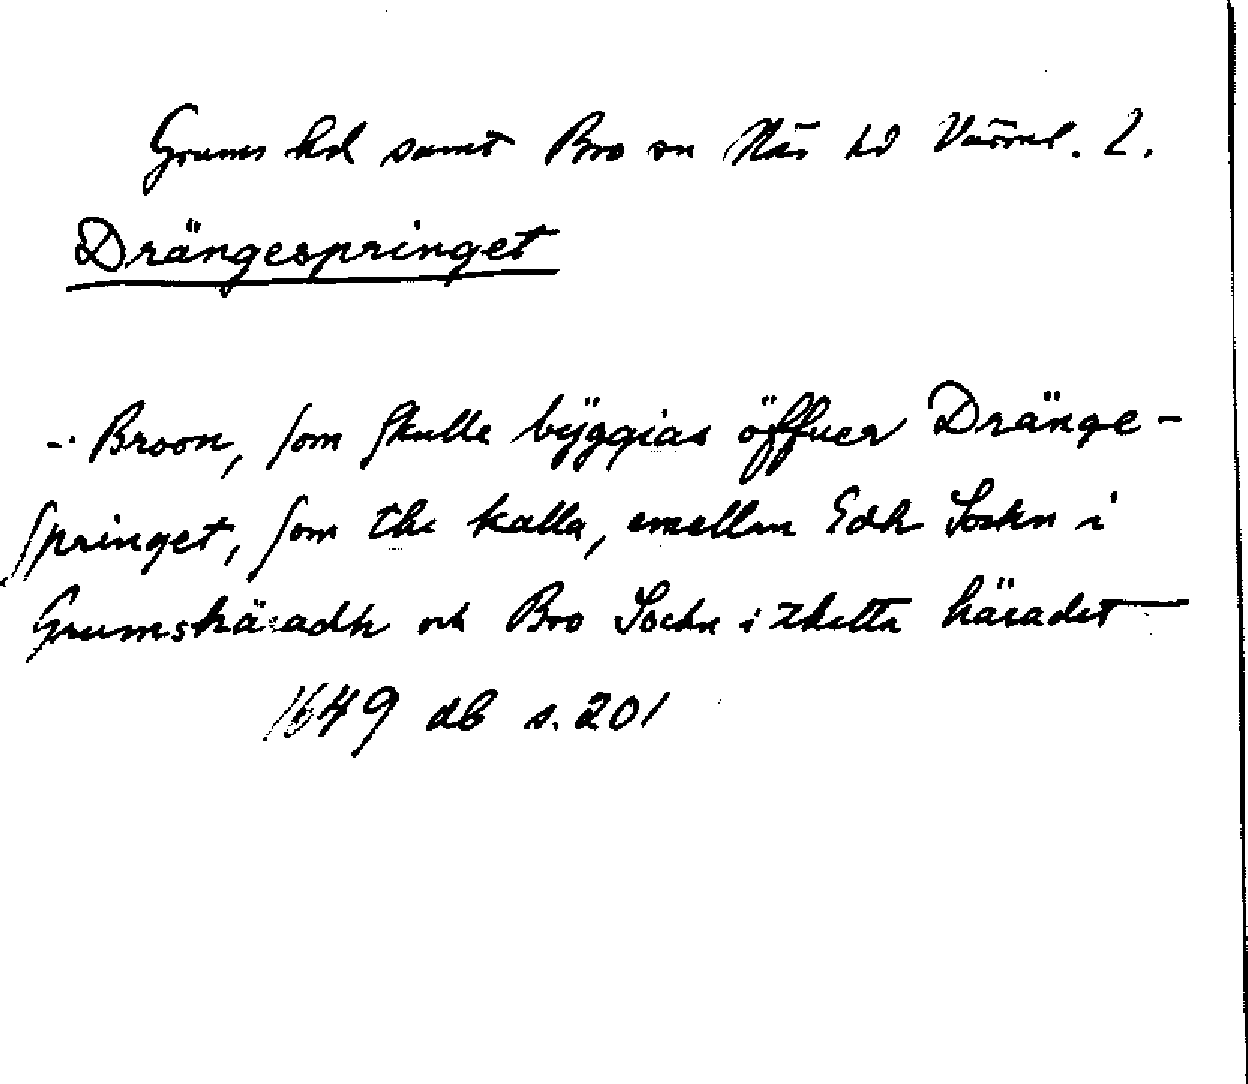 Grums hd samt Bro sn Näs hd Värml. l.
Drängespringet
-. Broon, som skulle bÿggias öffuer Dränge-
springet, som the kalla, emellan Edh Sochn i
Grumshäradh och Bro Sochn i thetta häradet
1649 db s. 201